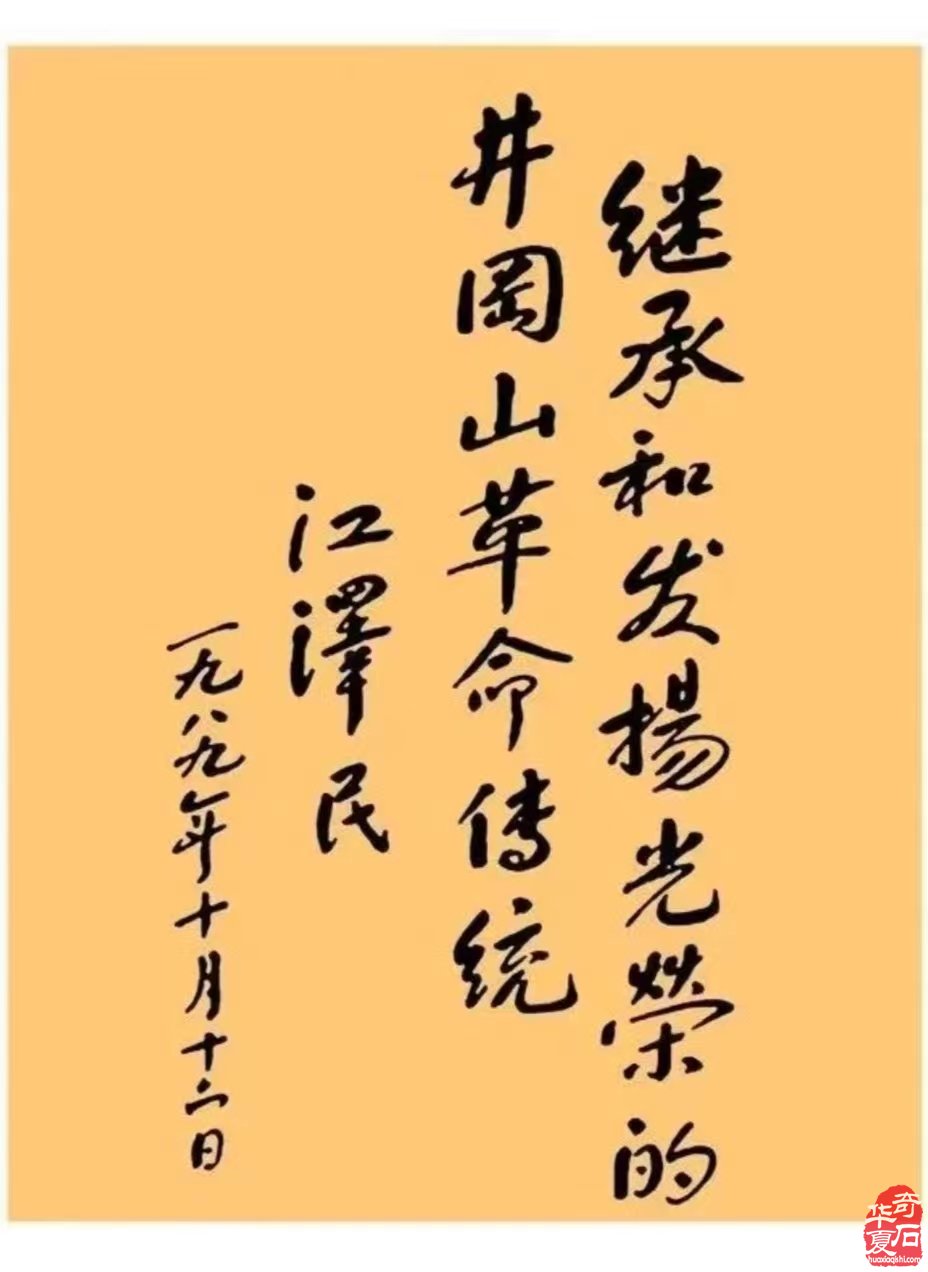 继承和发揚光榮的
井岡山革命传統
江澤民
一九八九年十月十二日
华夏奇石
huaxiaqishi.com